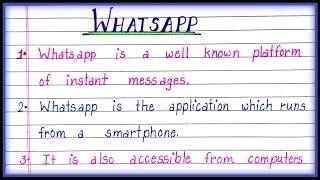 WHATSAPP
1• Whatsapp is a well known platform
of instant messages.
2• Whatsapp is the application which runs
from a smartphone.
3• It is also accessible from computers